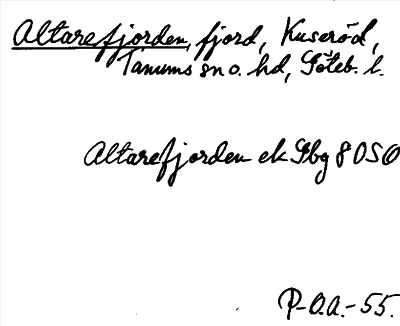 Altarefjorden, fjord, Kuseröd,
Tanums sn o. hd, Göteb. l.
Altarefjorden ek Gbg 8 OSO
P-O.A.-55.